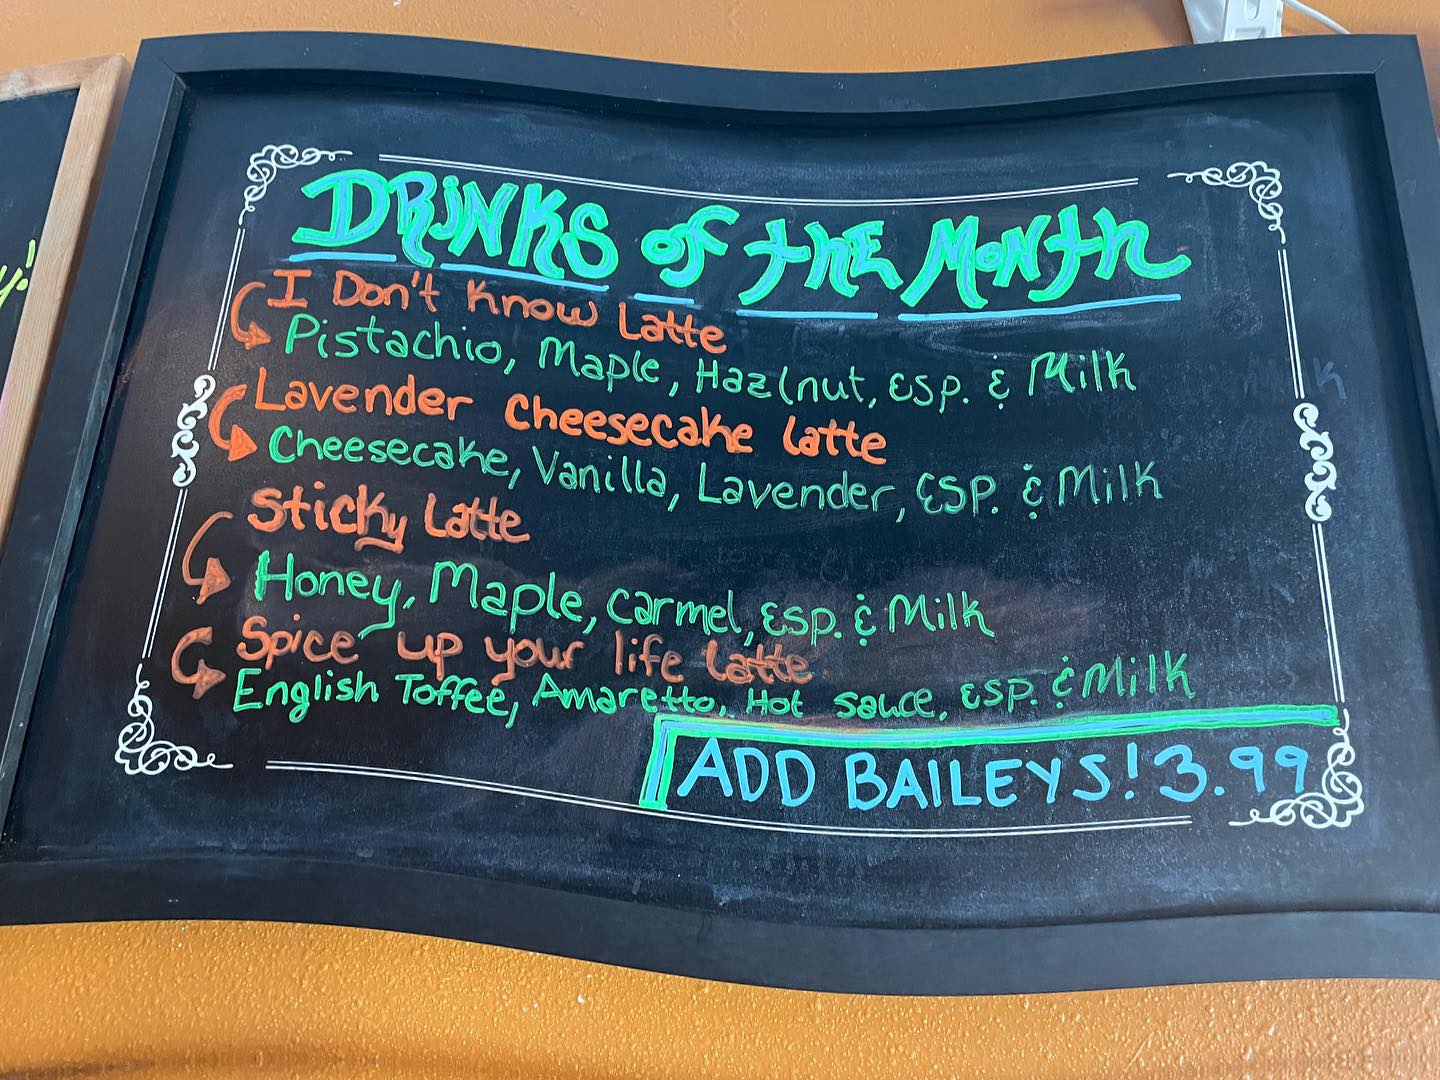 DRiNKS of the Month
I Don't Know Latte
Pistachio, Maple, Hazlnut, Esp. & Milk
Lavender Cheesecake latte
Cheesecake, Vanilla, Lavender, ESP. & Milk
Sticky Latte
Honey, Maple, Carmel, Esp. & Milk
Spice up your life latte
English Toffee, Amaretto, Hot sauce, Esp. & Milk
ADD BAILEYS! 3.99